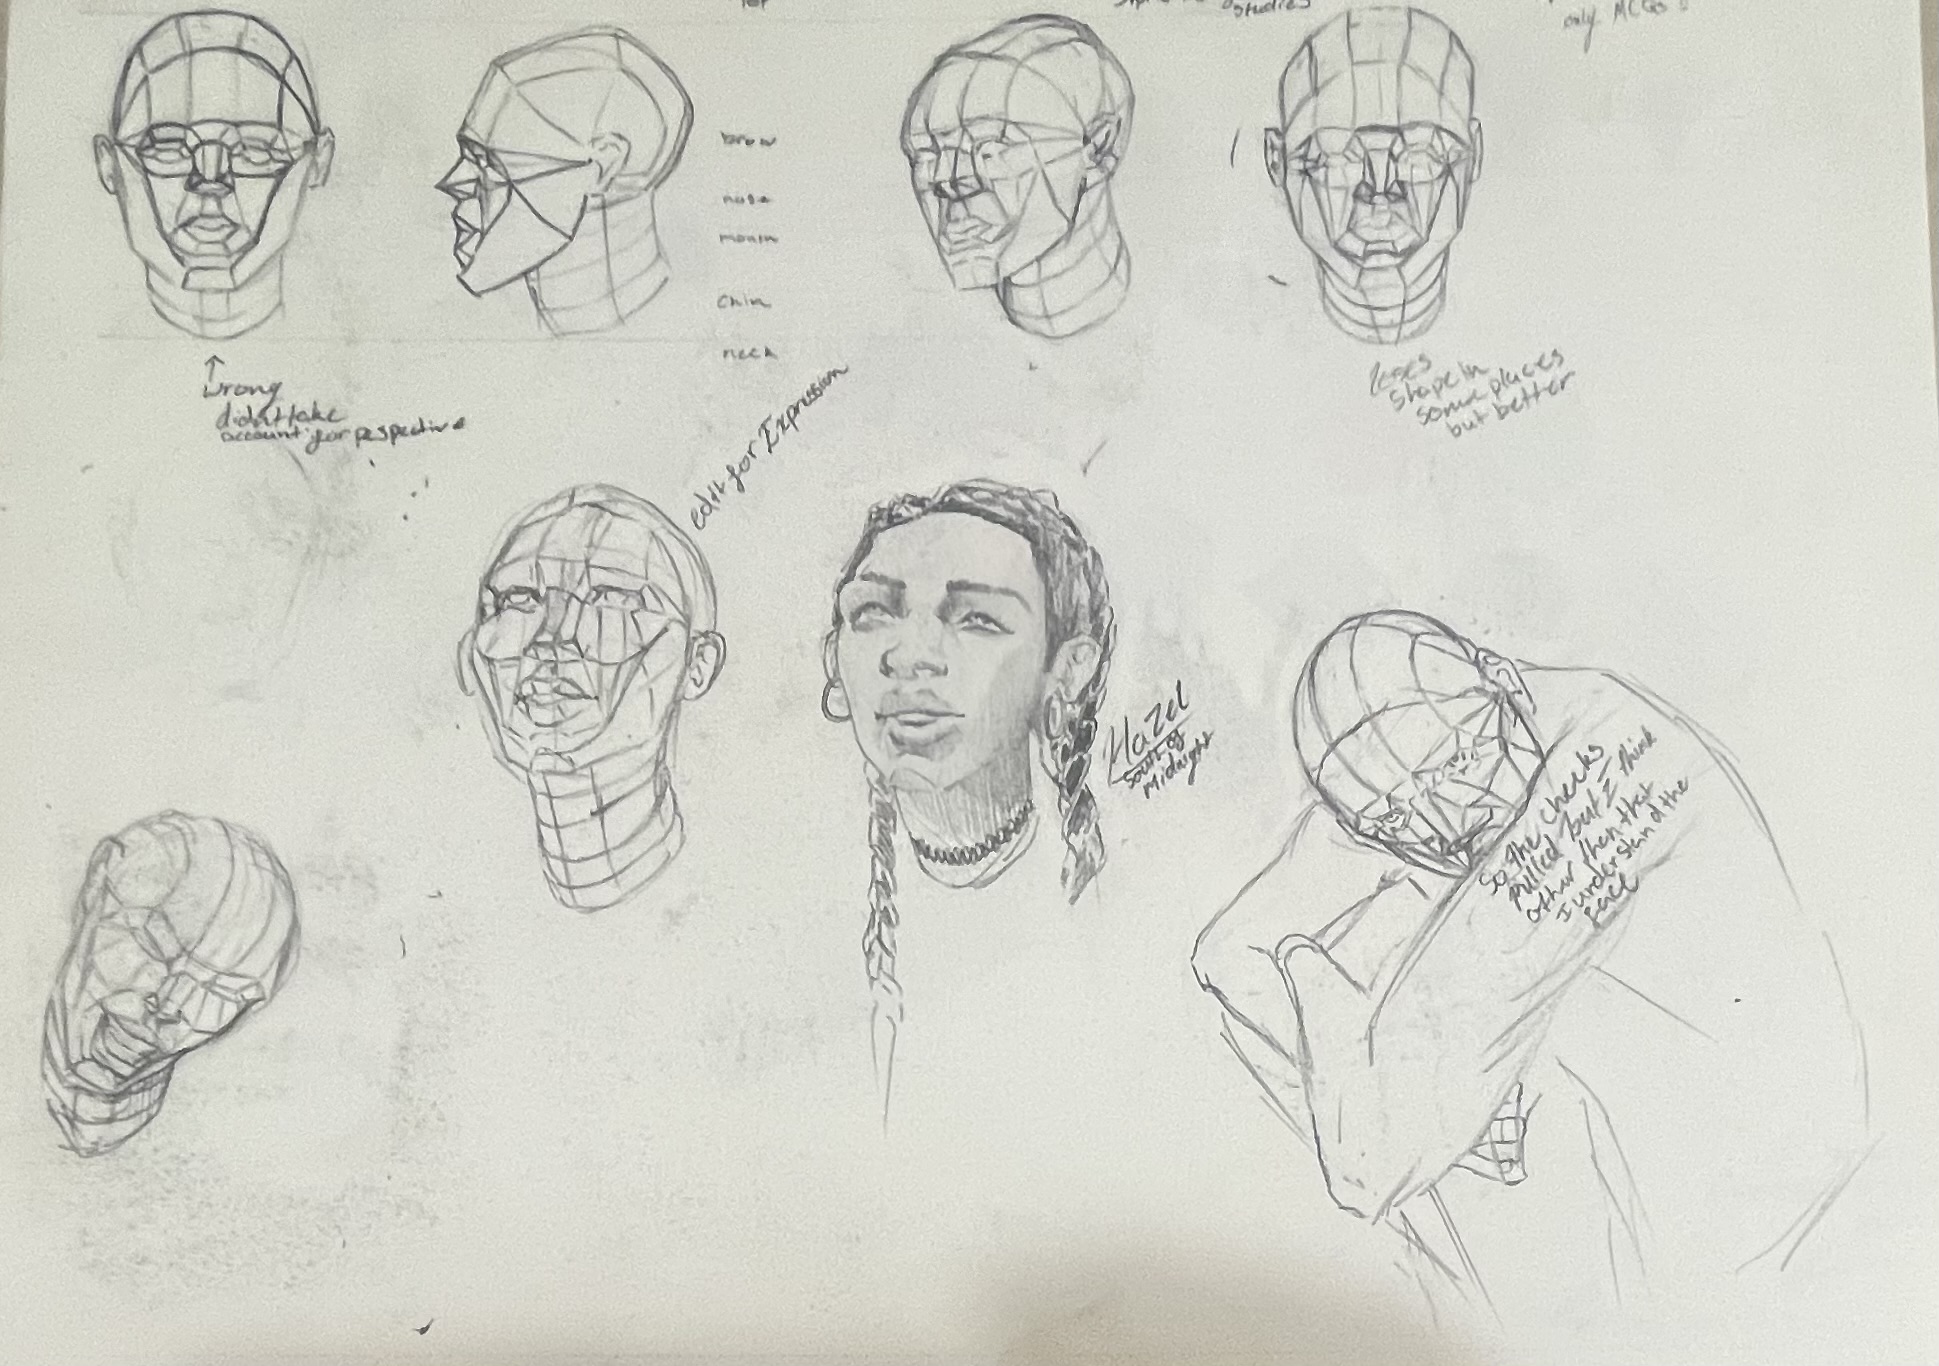 Studies
only MCQs
brow
nose
mouth
chin
neck
↑
wrong
didn't take
account for pespective
loses
shape in
some places
but better
edit for Expression
Hazel
South of
Midnight
So the cheeks
pulled but I think
other then that
I understand the
face